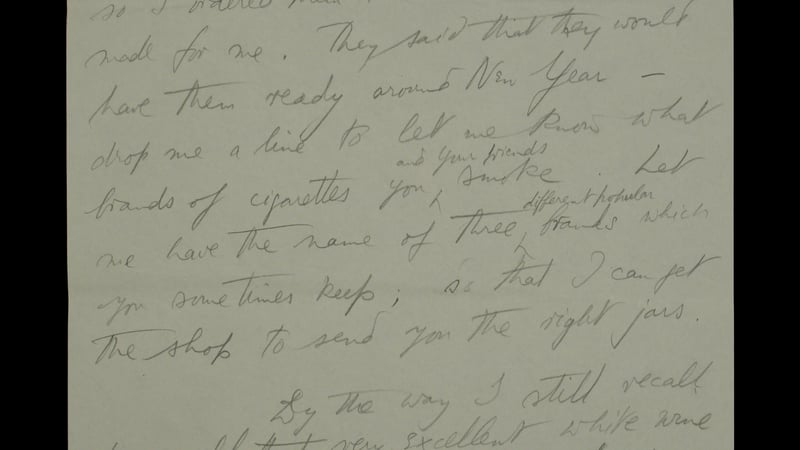 so I ordered
made for me. They said that they would
have them ready around New Year –
drop me a line to let me know what
and your friends
brands of cigarettes you smoke. Let
different popular
me have the name of three brands which
you sometimes keep; so that I can get
the shop to send you the right jars.
By the way I still recall
that very excellent white wine